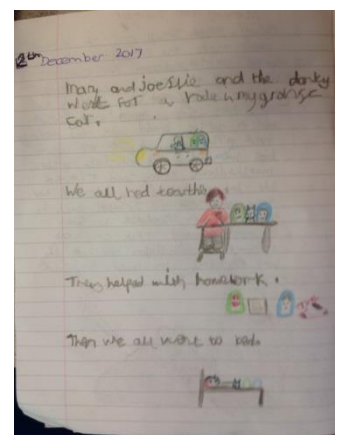 2th December 2017
Mary and joeslie and the donky
went for a ride in my granse
car.
We all had tea
They helped with homework.
Then we all went to bed.